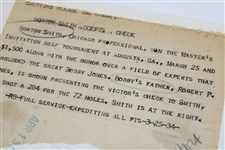 CAUTION: PLEASE USE CREDIT
HORTON SMITH - GOEFIG - CHECK
HORTON SMITH, CHICAGO PROFESSIONAL, WON THE MASTER'S
INVITATION GOLF TOURNAMENT AT AUGUSTA, GA., MARCH 25 AND
$1,500 ALONG WITH THE HONOR OVER A FIELD OF EXPERTS THAT
INCLUDED THE GREAT BOBBY JONES. BOBBY'S FATHER, ROBERT P.
JONES, IS SHOWN PRESENTING THE VICTOR'S CHECK TO SMITH,
SHOT A 284 FOR THE 72 HOLES. SMITH IS AT THE RIGHT.
-RD-FULL SERVICE-EXPEDITING ALL PTS-3-25-34-
APR 1